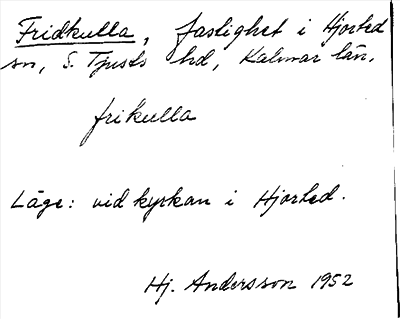 Fridkulla, fastighet i Hjorted
sn, S. Tjusts hd, Kalmar län.
frikulla
Läge: vid kyrkan i Hjorted.
Hj. Andersson 1952